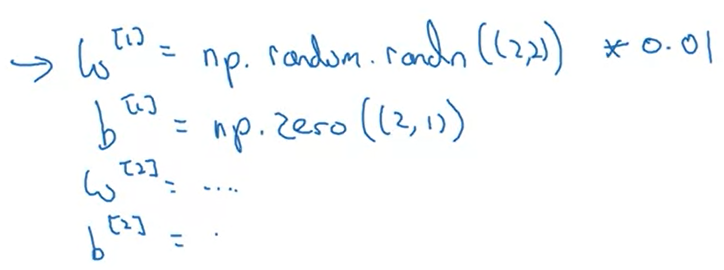 → W^[1] = np.random.randn((2,2)) * 0.01
b^[1] = np.zero((2,1))
W^[2] = ....
b^[2] = .